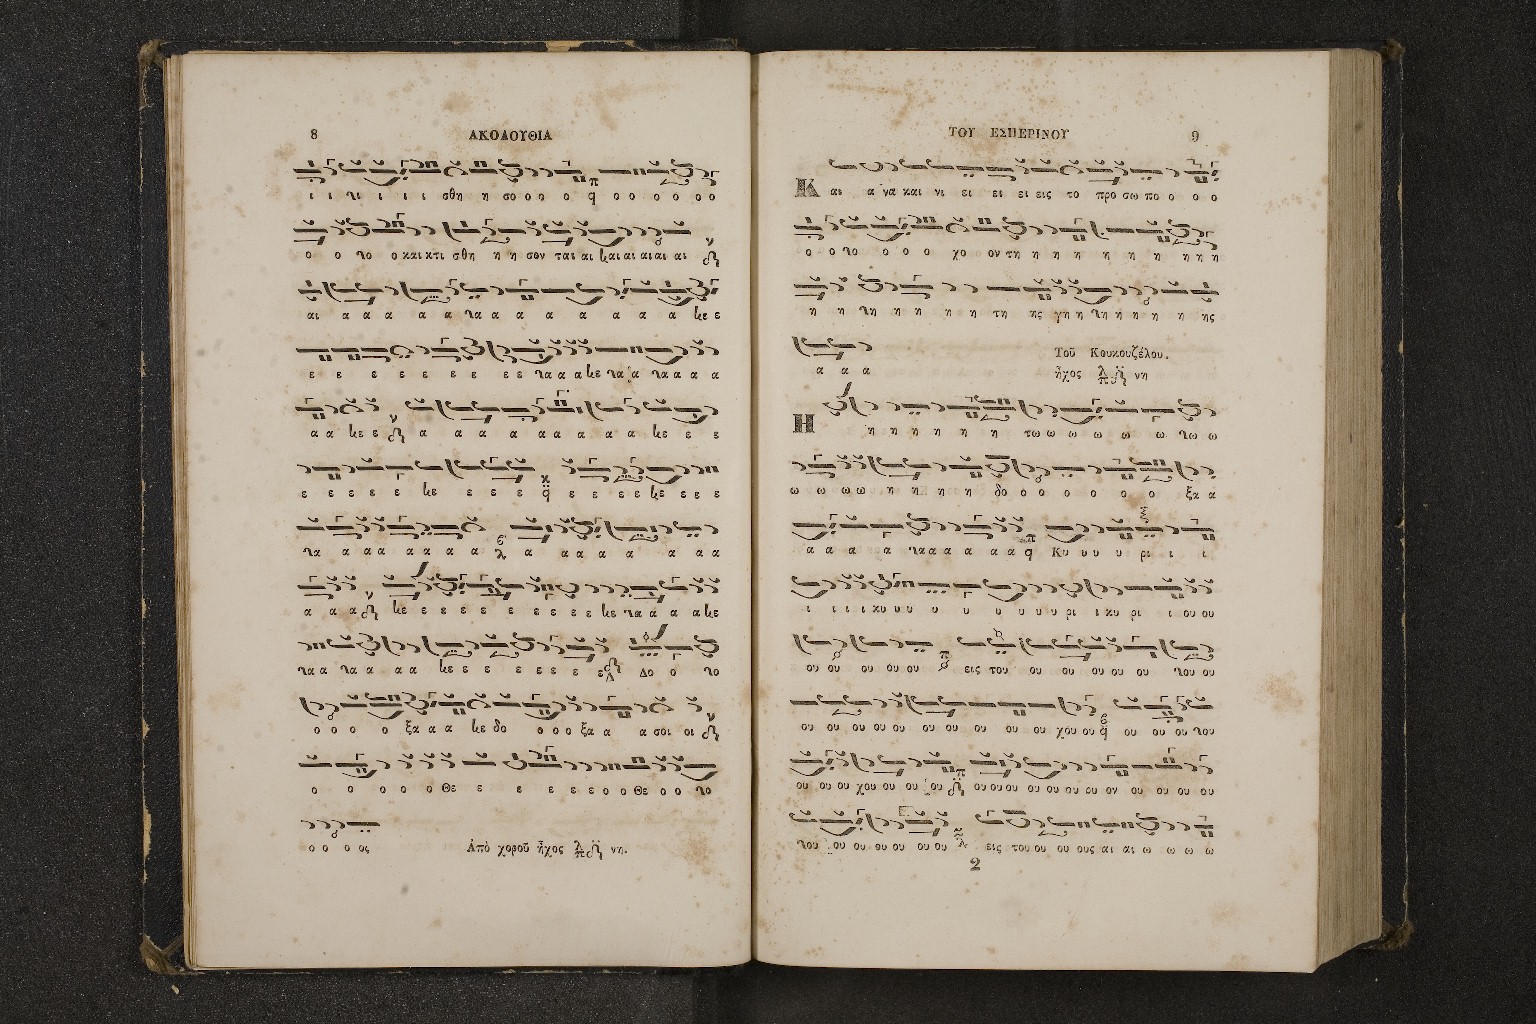 8
ΑΚΟΛΟΥΘΙΑ
ι ι χι ι ι ι σθη η σο ο ο ο ο ο ο ο ο ο
ο ο χο ο και κτι σθη η η σον ται αι και αι αι αι αι
αι α α α α α χα α α α α α α α α κε ε
ε ε ε ε ε ε ε ε ε χα α α κε χα α χα α α α
α α κε ε α α α α α α α α α α κε ε ε
ε ε ε ε ε κε ε ε ε ε ε ε ε κε ε ε ε
χα α α α α α α α α α α α α α α α α
α α α κε ε ε ε ε ε ε ε ε ε κε χα α α α κε
χα α χα α α α κε ε ε ε ε ε ε ε Δο ο χο
ο ο ο ο ξα α α κε δο ο ο ο ξα α α σοι οι
ο ο ο ο ο Θε ε ε ε ε ε ο ο Θε ο ο χο
ο ο ο ος Ἀπὸ χοροῦ ἦχος νη.
ΤΟΥ ΕΣΠΕΡΙΝΟΥ
9
Και α να και νι ει ει ει εις το προ σω πο ο ο ο
ο ο χο ο ο ο χο ον τη η η η η η η η η η
η η χη η η η η τη ης γη η χη η η η η ης
α α α
Τοῦ Κουκουζέλου.
ἦχος νη
Η η η η η η η τω ω ω ω ω ω χω ω
ω ω ω ω η η η η δο ο ο ο ο ο ο ξα α
α α α α χα α α α α α Κυ υ υ υ ρι ι ι
ι ι ι ι κυ υ υ υ υ υ υ υ υ ρι ι κυ ρι ι ου ου
ου ου ου ου ου εις του ου ου ου ου ου χου ου
ου ου ου ου ου ου ου ου ου ου χου ου ου ου ου χου
ου ου ου χου ου ου ου ου ου ου ου ου ου ου ου ου ου ου ου
χου ου ου ου ου ου ου εις του ου ου ους αι αι ω ω ω ω
2